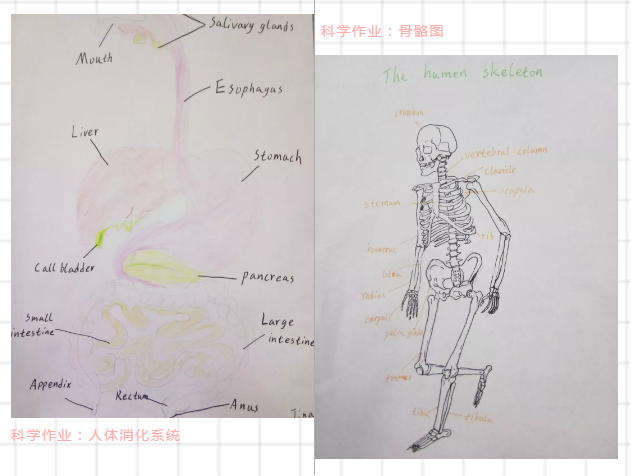 Salivary glands
Mouth
Esophagus
Liver
Stomach
Call bladder
pancreas
Small
intestine
Large
intestine
Appendix
Rectum
Anus
科学作业：人体消化系统
科学作业：骨骼图
The humen skeleton
cranium
vertebral column
clavicle
scapula
sternum
rib
humerus
radius
carpals
femur
tibia
fibula